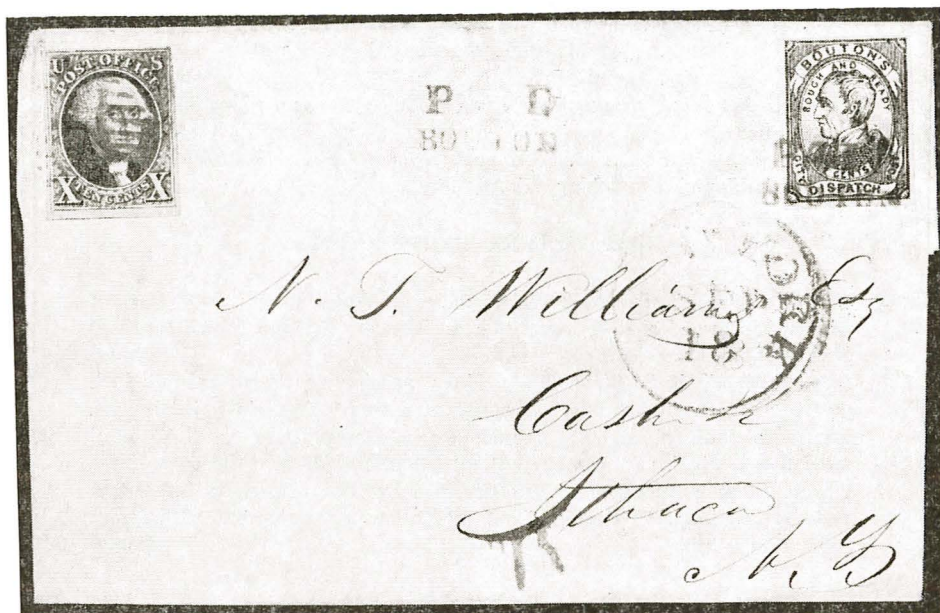 U S
POST OFFICE
X TEN CENTS X
P D
BOUTON
BOUTON'S
ROUGH AND READY
CITY
CENTS
DISPATCH
SEP
18
N. T. Williams Esq
Cashr
Ithaca
N. Y